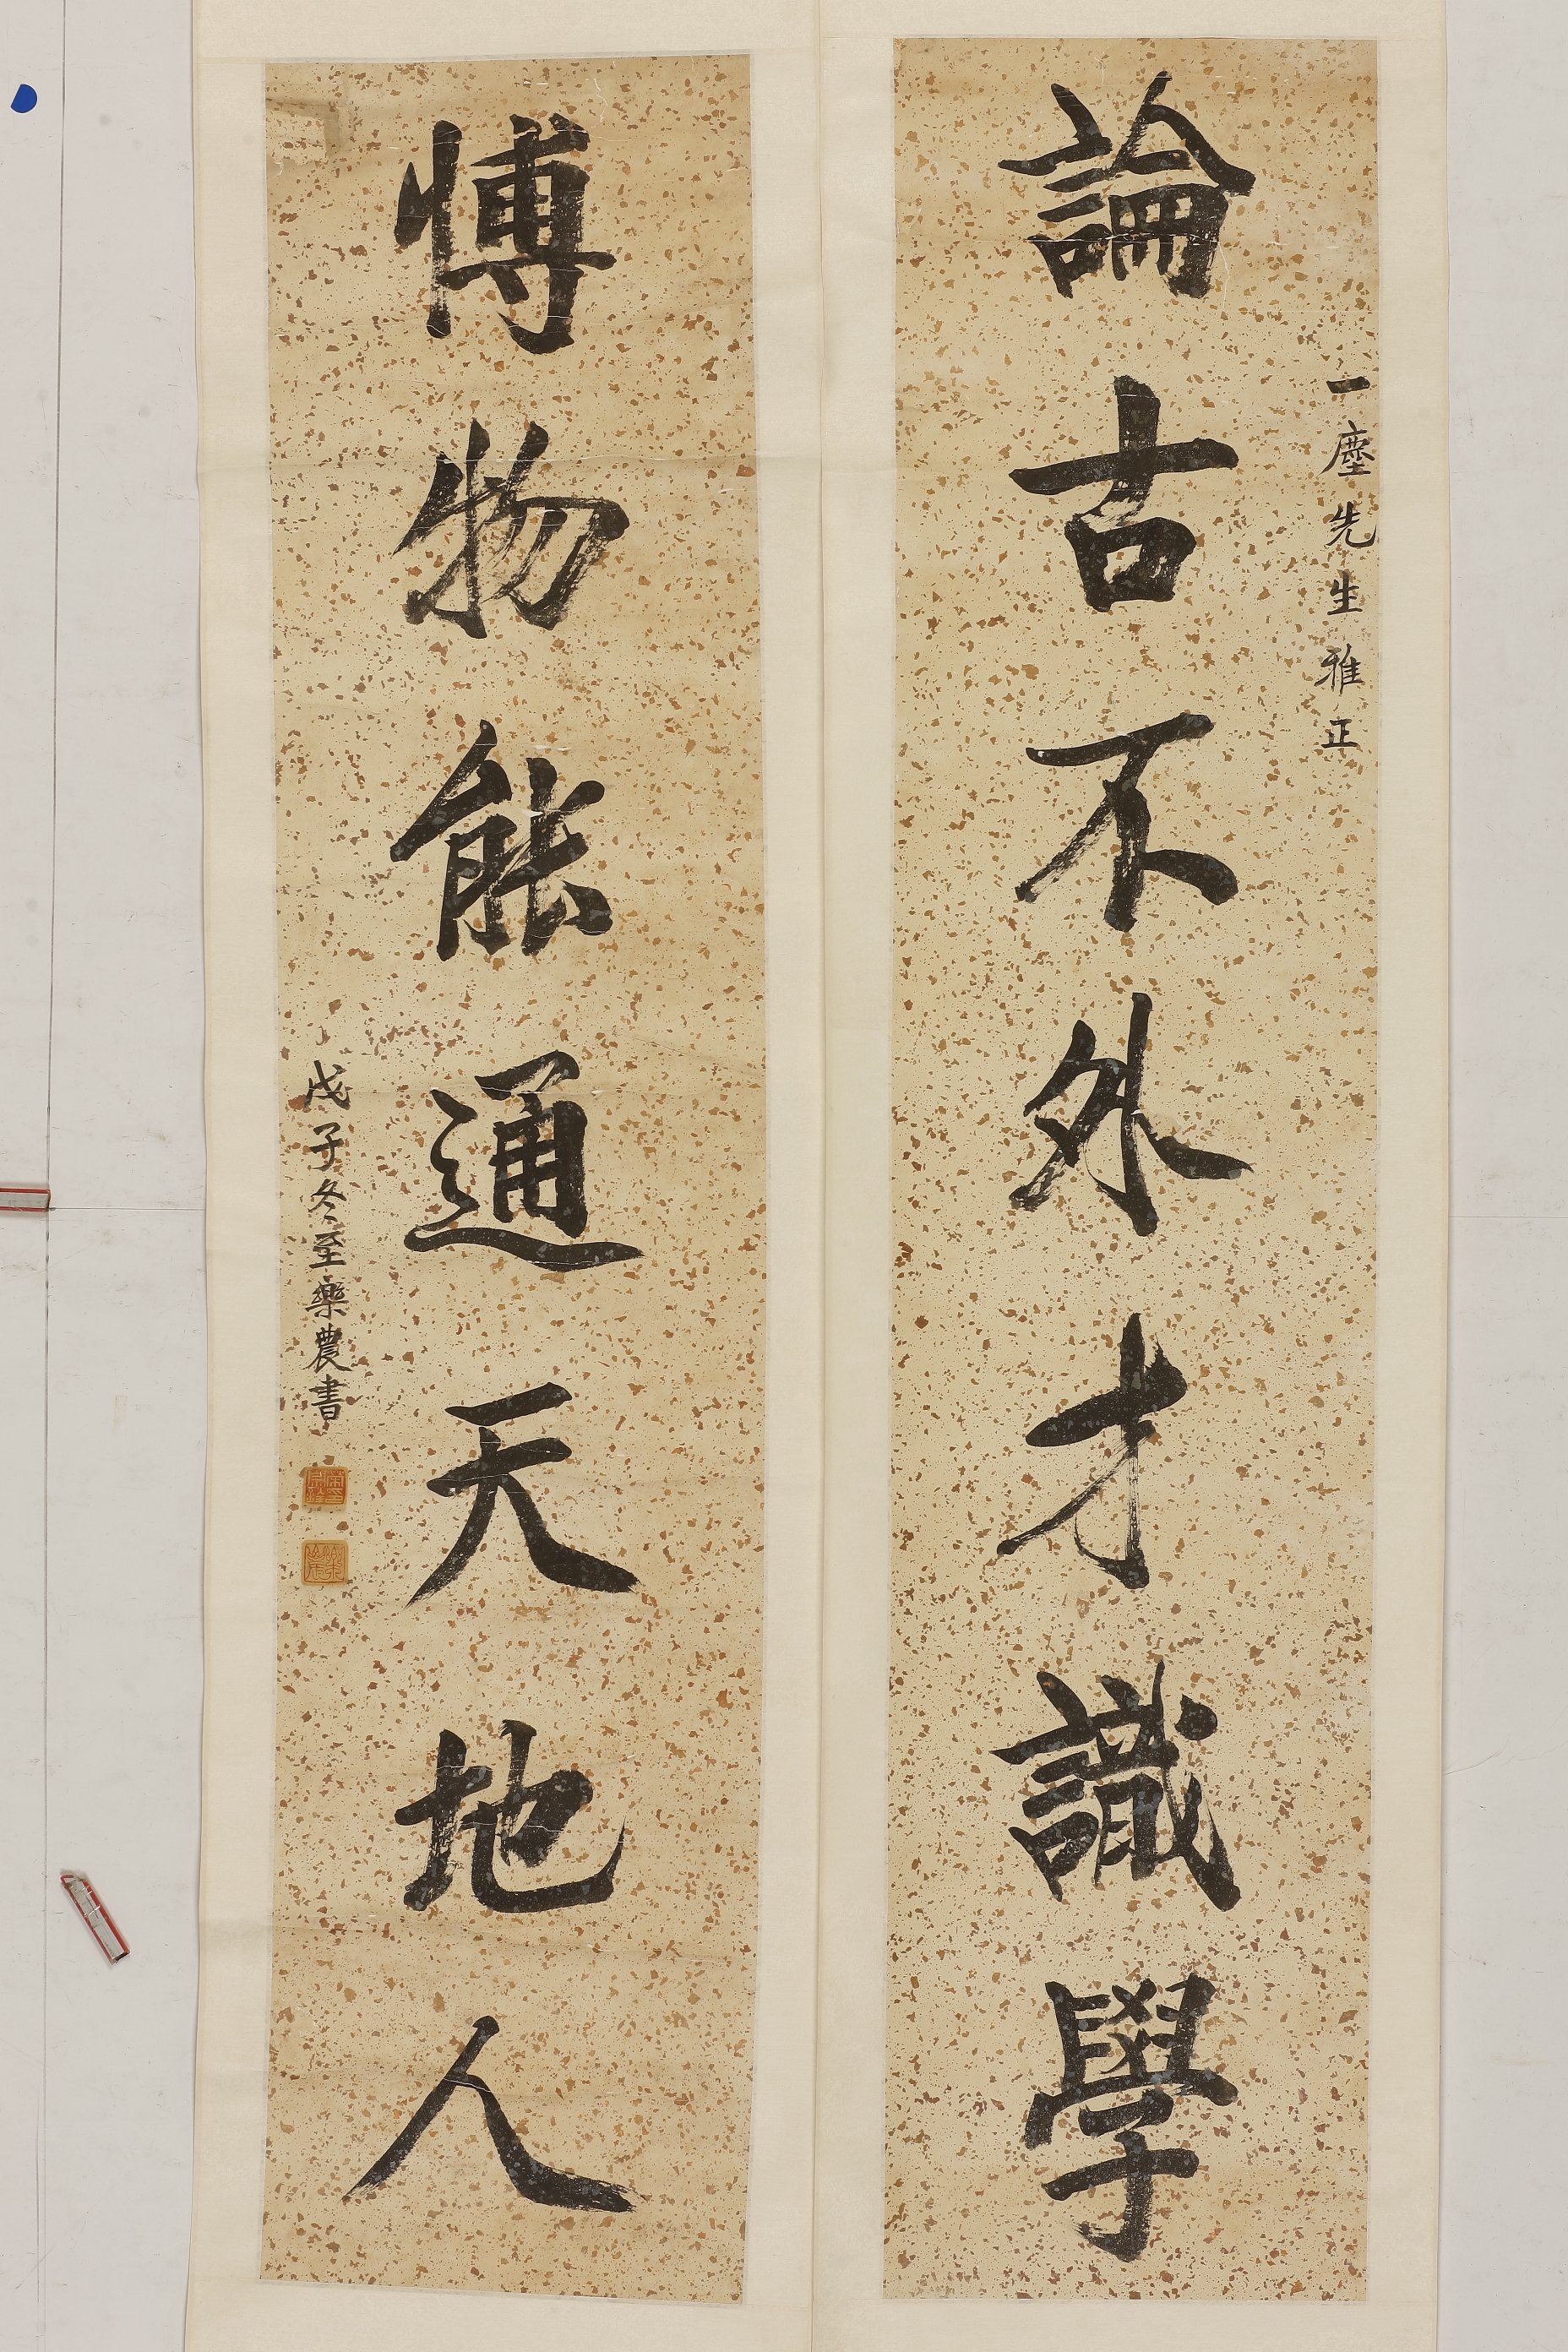 論古不外才識學
一塵先生雅正
博物能通天地人
戊子冬至藥農書